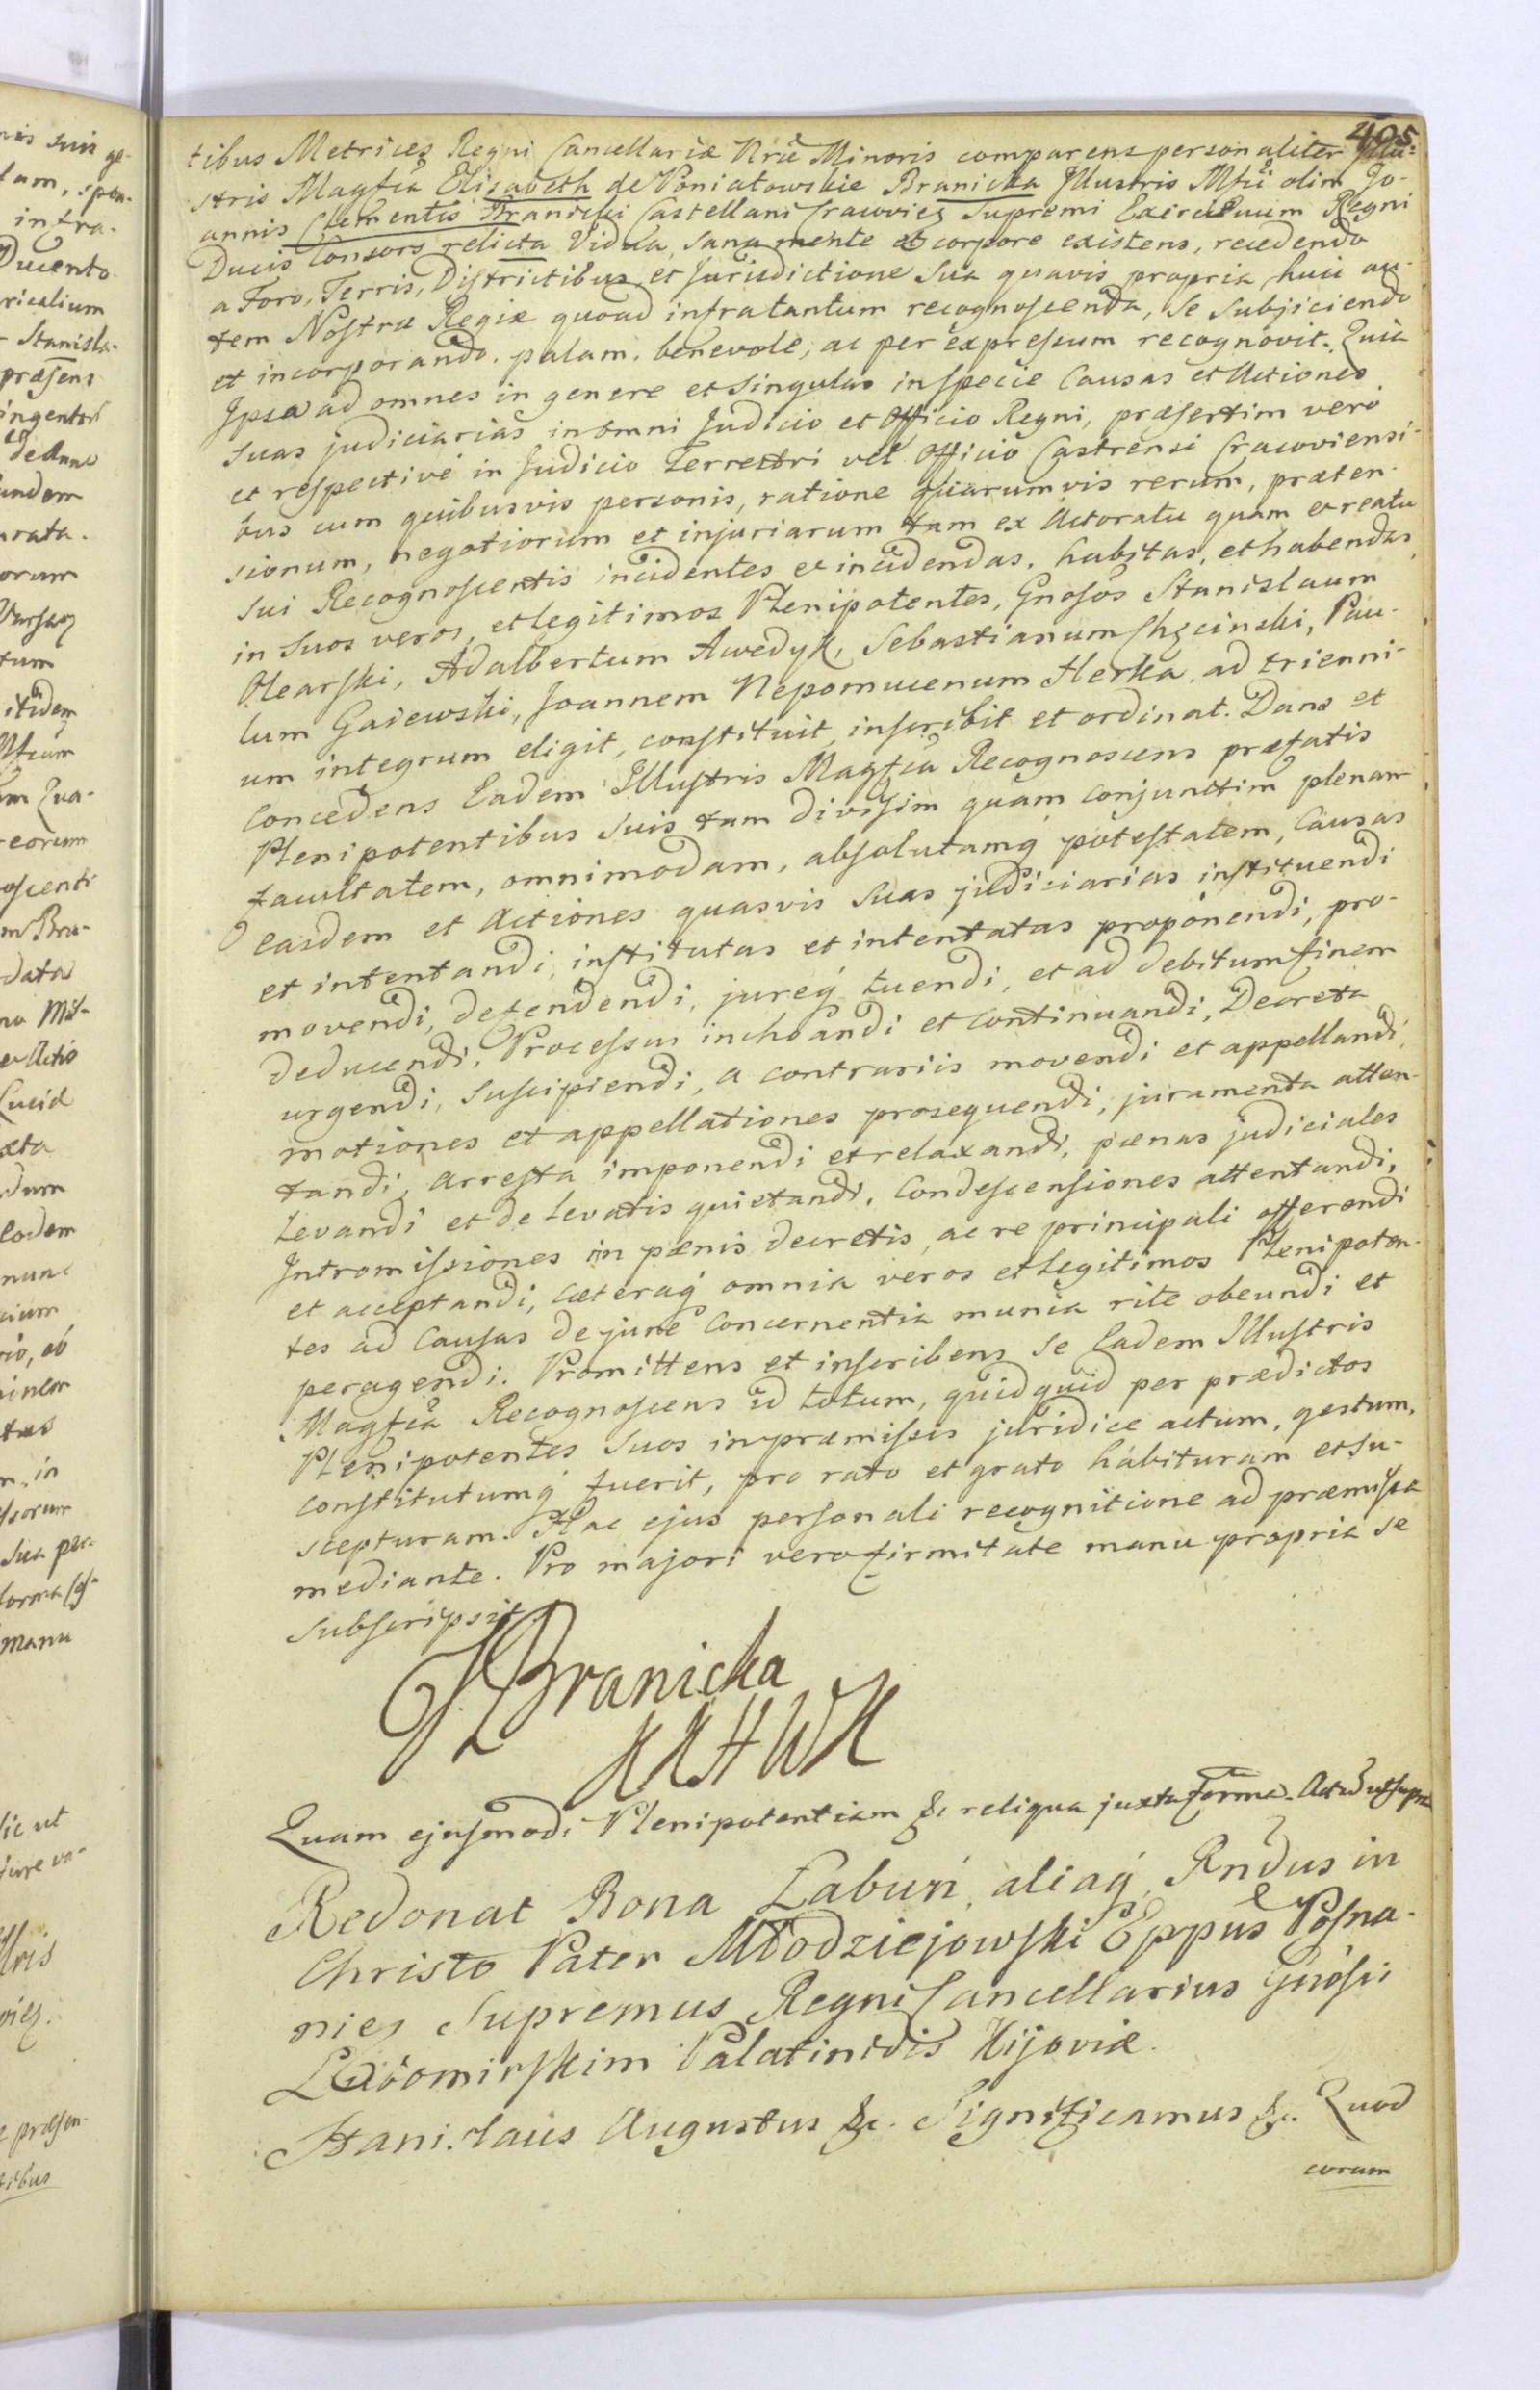 405
tibus Metrices Regni Cancellariæ Nræ Minoris comparens personaliter Illu-
stris Magfca Elisabeth de Poniatowskie Branicka Illustris Mfci olim Jo-
annis Clementis Branicki Castellani Cracovien Supremi Exercituum Regni
Ducis Consors relicta Vidua, sana mente et corpore existens, recedendo
a Foro, Terris, Districtibus et Jurisdictione Sua quavis propria huic au-
tem Nostræ Regiæ quoad infratantum recognoscenda, se subjiciendo
et incorporando. palam. benevole, ac per expressum recognovit. Quia
Ipsa ad omnes in genere et singulas in specie Causas et Actiones
suas judiciarias in omni Judicio et Officio Regni, præsertim vero
et respectivé in Judicio Terrestri vel Officio Castrensi Cracoviensi-
bus cum quibusvis personis, ratione quarumvis rerum, præten-
sionum, negotiorum et injuriarum tam ex Actoratu quam ex reatu
sui Recognoscentis incidentes et incidendas, habitas, et habendas,
in suos veros, et legitimos Plenipotentes, Gnosos Stanislaum
Olearski, Adalbertum Awedyk, Sebastianum Chęcinski, Pau-
lum Gaiewski, Joannem Nepomucenum Herka, ad trienni-
um integrum eligit, constituit, inscribit et ordinat. Dans et
Concedens Eadem Illustris Magfca Recognoscens præfatis
Plenipotentibus suis tam divisim quam conjunctim plenam
facultatem, omnimodam, absolutamq potestatem, Causas
easdem et Actiones quasvis suas judiciarias instituendi
et intentandi, institutas et intentatas proponendi, pro-
movendi, defendendi, jureq tuendi, et ad debitum finem
deducendi, Processus inchoandi et continuandi, Decreta
urgendi, suscipiendi, a contrariis movendi et appellandi,
motiones et appellationes prosequendi, juramenta atten-
tandi, arresta imponendi et relaxandi, pænas judiciales
levandi et de levatis quietandi, Condescensiones attentandi,
Intromissiones in pænis decretis, ac re principali offerendi
et acceptandi, cæteraq omnia veros et legitimos Plenipoten-
tes ad Causas de jure Concernentia munia rite obeundi et
peragendi. Promittens et inscribens se Eadem Illustris
Magfca Recognoscens id totum, quidquid per prædictos
Plenipotentes suos in præmissis juridice actum, gestum,
constitutumq fuerit, pro rato et grato habituram et su-
scepturam. Hac ejus personali recognitione ad præmissa
mediante. Pro majori vero firmitate manu propria se
subscripsit.
Branicka
KKHWK
Quam ejusmodi Plenipotentiam &c reliqua juxta forma. Act ut supra
Redonat Bona Łabuń, aliaq, Rndus in
Christo Pater Młodziejowski Eppus Posna-
nien Supremus Regni Cancellarius Gnosii
Lubomirskim Palatinidis Kijoviæ.
Stanislaus Augustus &c. Significamus &c. Quod
coram